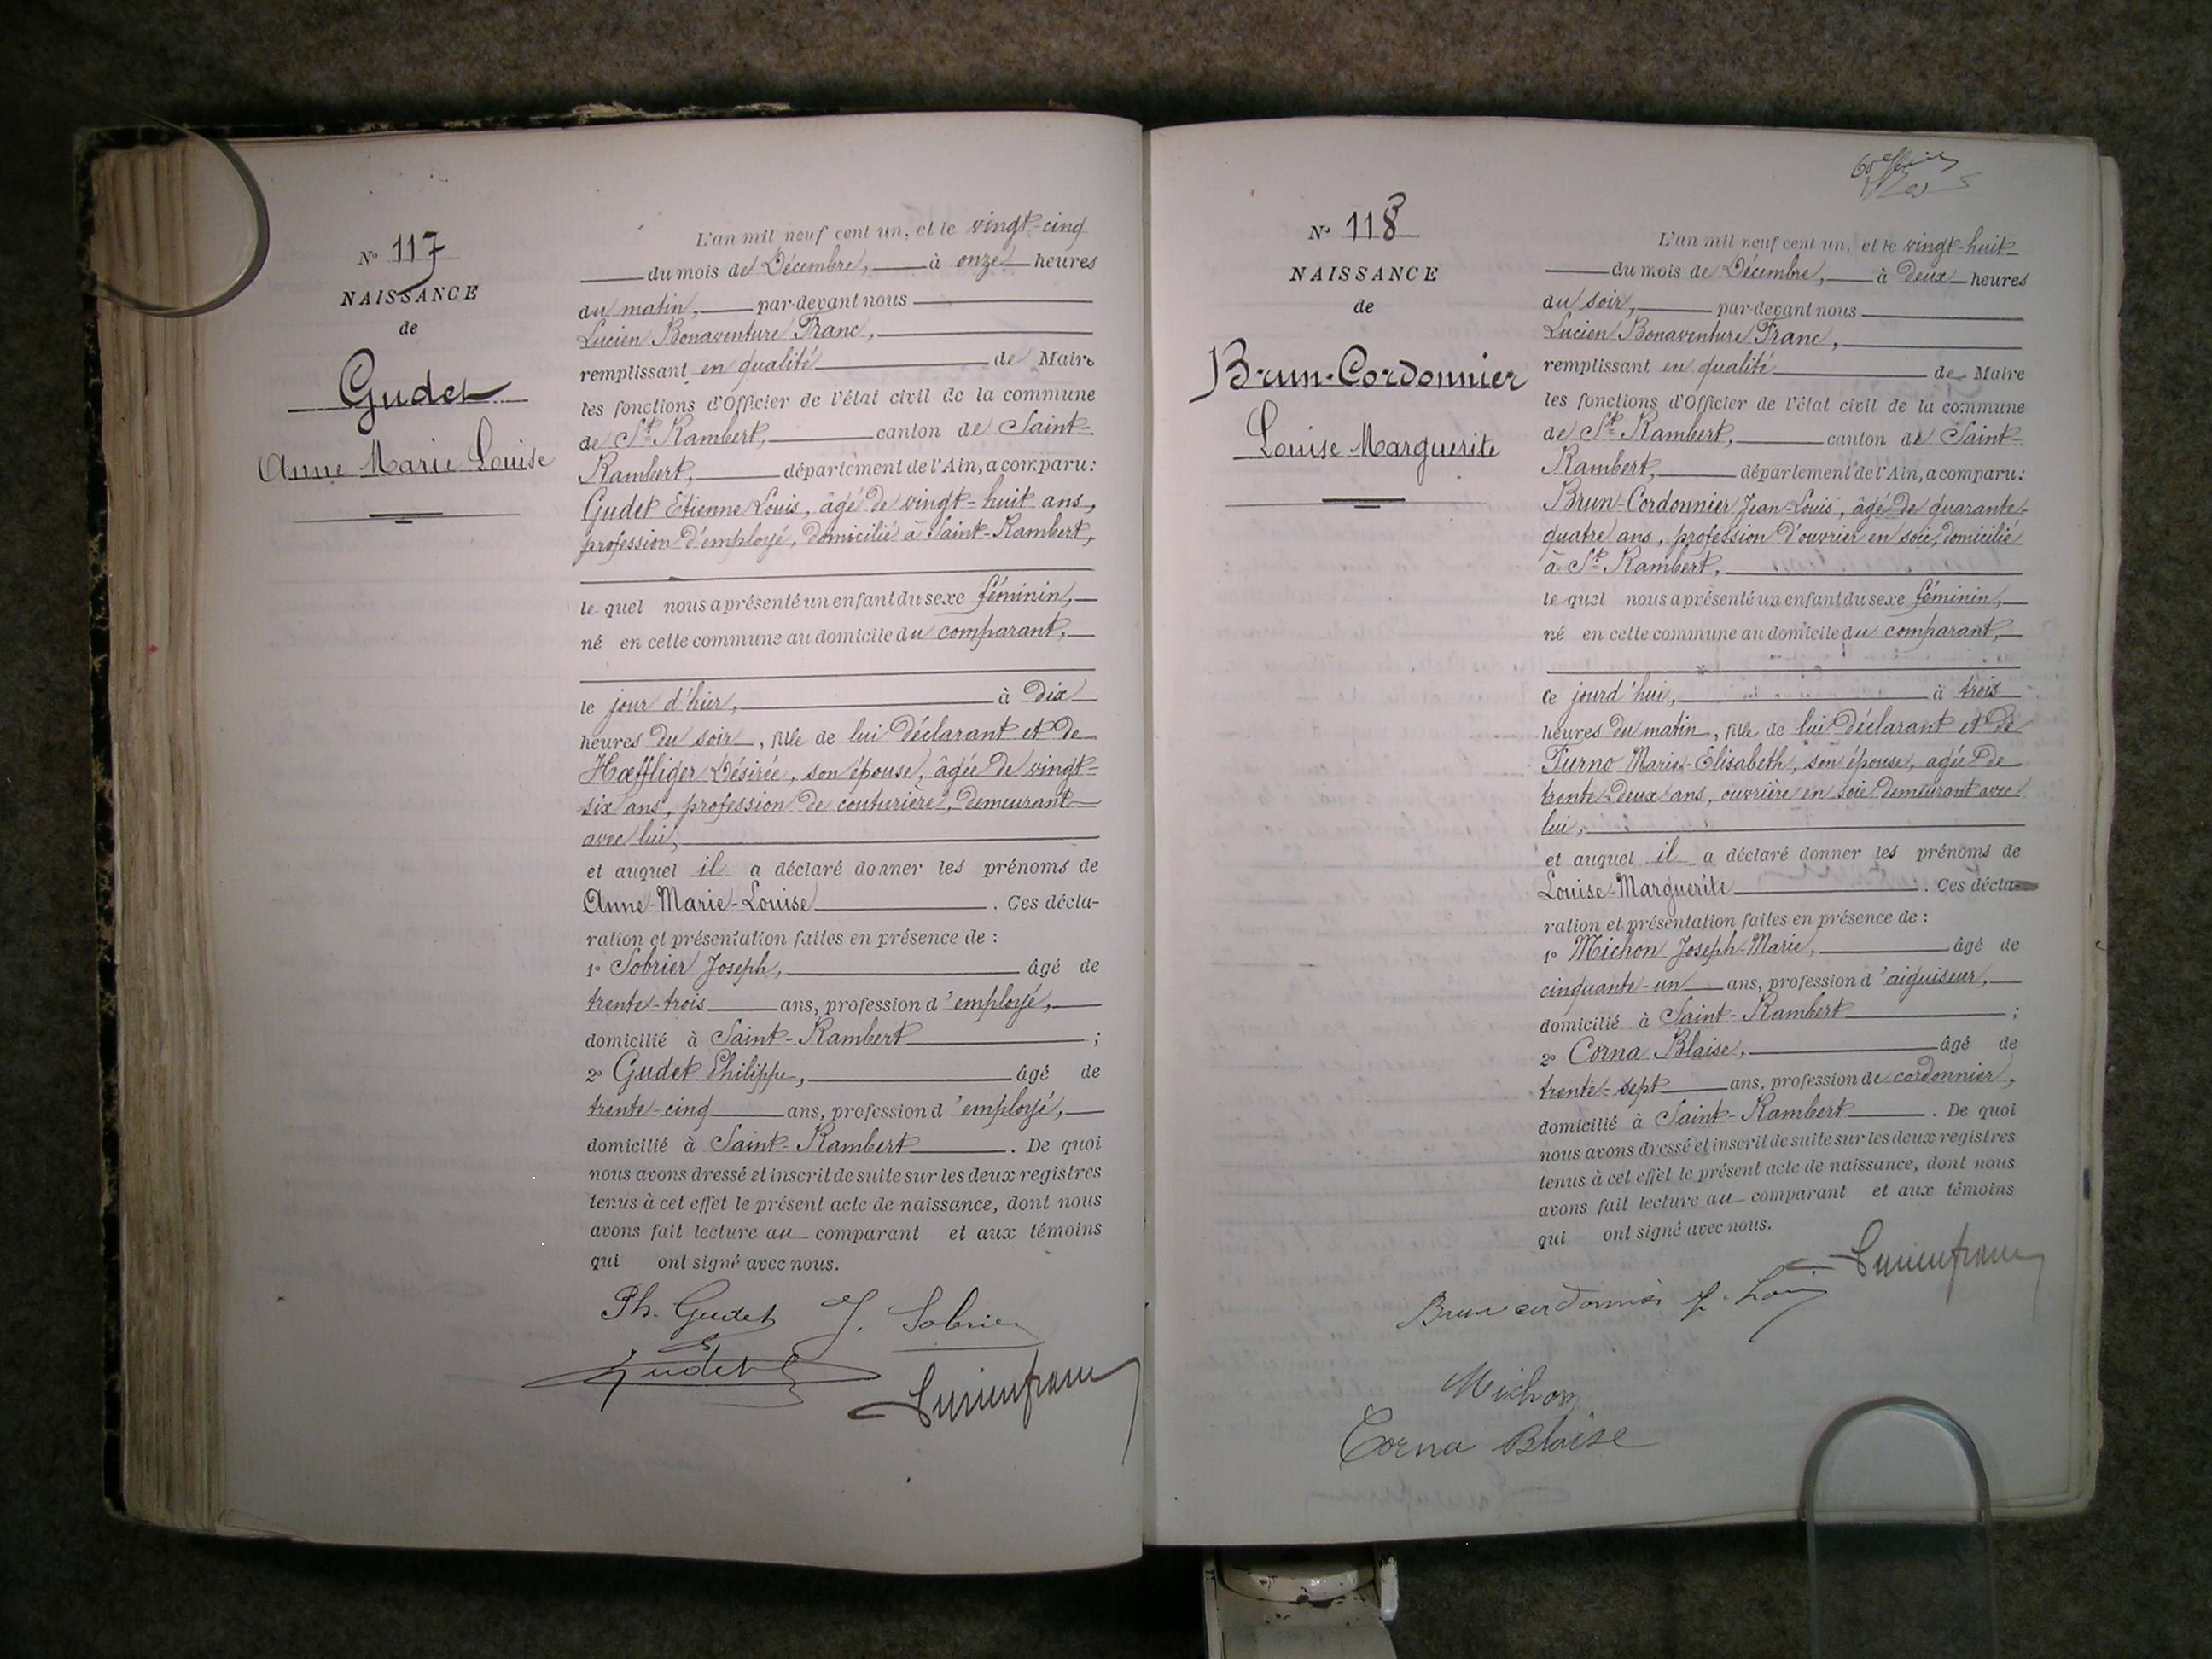 N° 117
NAISSANCE
de
Gudet
Anne Marie Louise
L'an mil neuf cent un, et le vingt-cinq
du mois de Décembre, à onze heures
du matin, par-devant nous
Lucien Bonaventure Franc,
remplissant en qualité de Maire
les fonctions d'Officier de l'état civil de la commune
de St Rambert, canton de Saint-
Rambert, département de l'Ain, a comparu:
Gudet Etienne Louis, âgé de vingt-huit ans,
profession d'employé, domicilié à Saint-Rambert,
le quel nous a présenté un enfant du sexe féminin,
né en cette commune au domicile du comparant,
le jour d'hier, à dix
heures du soir, fille de lui déclarant et de
Hœffliger Désirée, son épouse, âgée de vingt-
six ans, profession de couturière, demeurant
avec lui,
et auquel il a déclaré donner les prénoms de
Anne-Marie-Louise. Ces décla-
ration et présentation faites en présence de :
1° Sobrier Joseph, âgé de
trente-trois ans, profession d'employé,
domicilié à Saint-Rambert ;
2° Gudet Philippe, âgé de
trente-cinq ans, profession d'employé,
domicilié à Saint-Rambert. De quoi
nous avons dressé et inscrit de suite sur les deux registres
tenus à cet effet le présent acte de naissance, dont nous
avons fait lecture au comparant et aux témoins
qui ont signé avec nous.
Ph. Gudet J. Sobrier
Gudet
Lucien franc
N° 118
NAISSANCE
de
Brun-Cordonnier
Louise Marguerite
L'an mil neuf cent un, et le vingt-huit
du mois de Décembre, à deux heures
du soir, par-devant nous
Lucien Bonaventure Franc,
remplissant en qualité de Maire
les fonctions d'Officier de l'état civil de la commune
de St Rambert, canton de Saint-
Rambert, département de l'Ain, a comparu:
Brun-Cordonnier Jean-Louis, âgé de quarante-
quatre ans, profession d'ouvrier en soie, domicilié
à St Rambert,
le quel nous a présenté un enfant du sexe féminin,
né en cette commune au domicile du comparant,
ce jourd'hui, à trois
heures du matin, fille de lui déclarant et de
Furno Marie-Elisabeth, son épouse, agée de
trente-deux ans, ouvrière en soie demeurant avec
lui,
et auquel il a déclaré donner les prénoms de
Louise-Marguerite. Ces décla-
ration et présentation faites en présence de :
1° Michon Joseph-Marie, âgé de
cinquante-un ans, profession d'aiguiseur,
domicilié à Saint-Rambert ;
2° Corna Blaise, âgé de
trente-sept ans, profession de cordonnier,
domicilié à Saint-Rambert. De quoi
nous avons dressé et inscrit de suite sur les deux registres
tenus à cet effet le présent acte de naissance, dont nous
avons fait lecture au comparant et aux témoins
qui ont signé avec nous.
Lucien franc
Brun cordonnier J. Louis
Michon
Corna Blaise